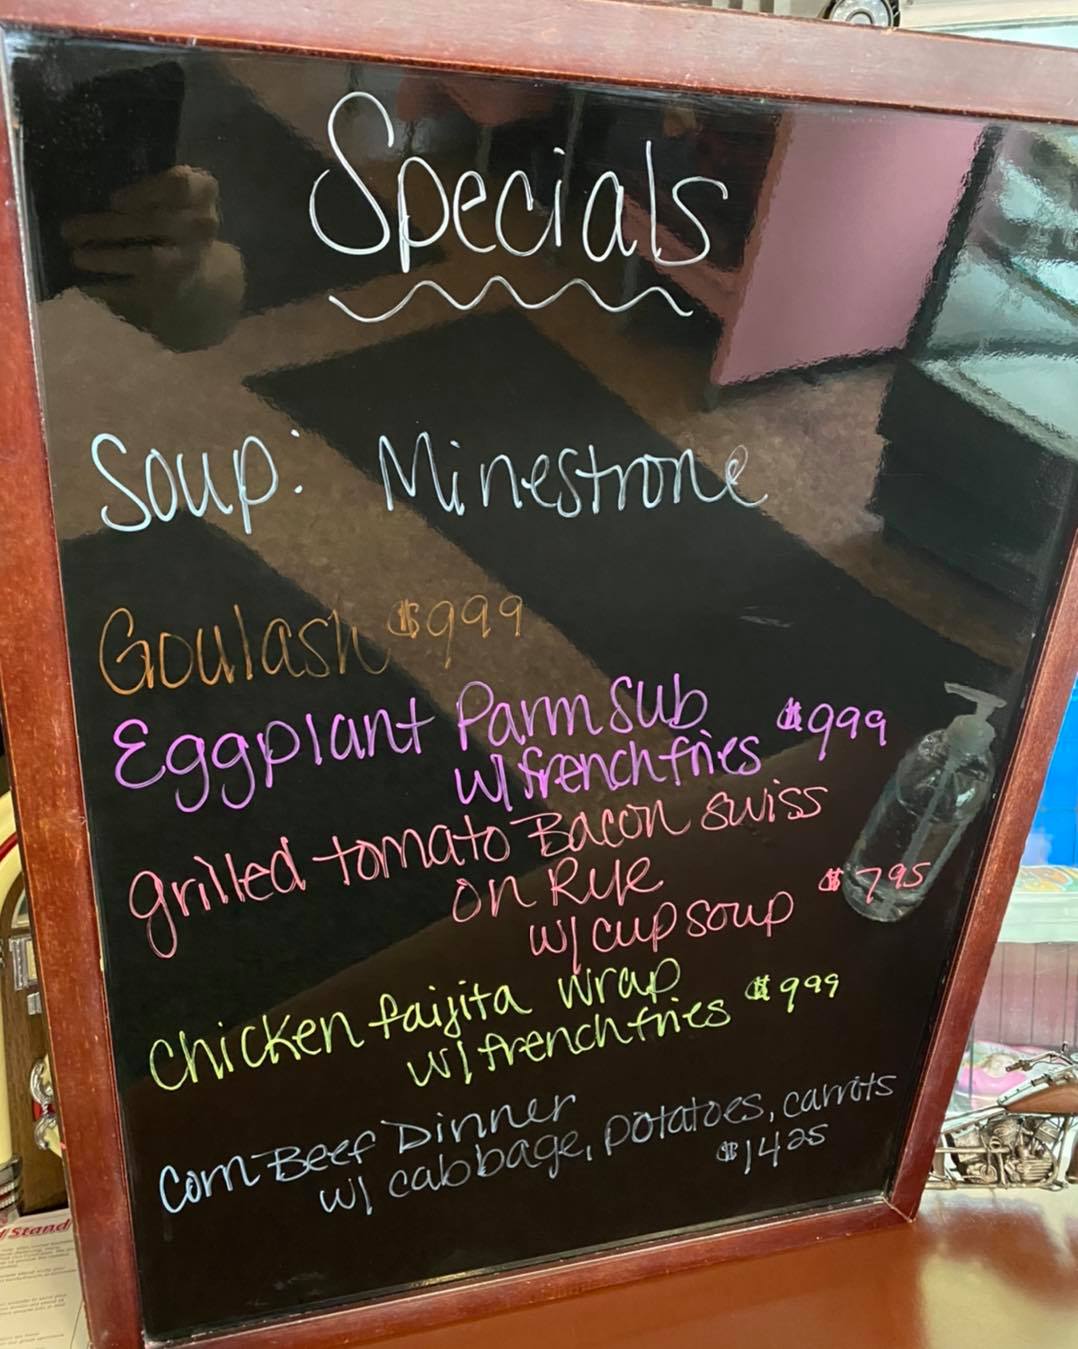 Specials
Soup: Minestrone
Goulash $999
Eggplant Parm Sub
w/ french fries $999
grilled tomato Bacon swiss
on Rye
w/ cup soup $795
Chicken faijita wrap
w/ french fries $999
Corn Beef Dinner
w/ cabbage, potatoes, carrots
$1425
Stand